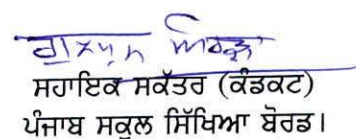 ਸਹਾਇਕ ਸਕੱਤਰ (ਕੰਡਕਟ)
ਪੰਜਾਬ ਸਕੂਲ ਸਿੱਖਿਆ ਬੋਰਡ।